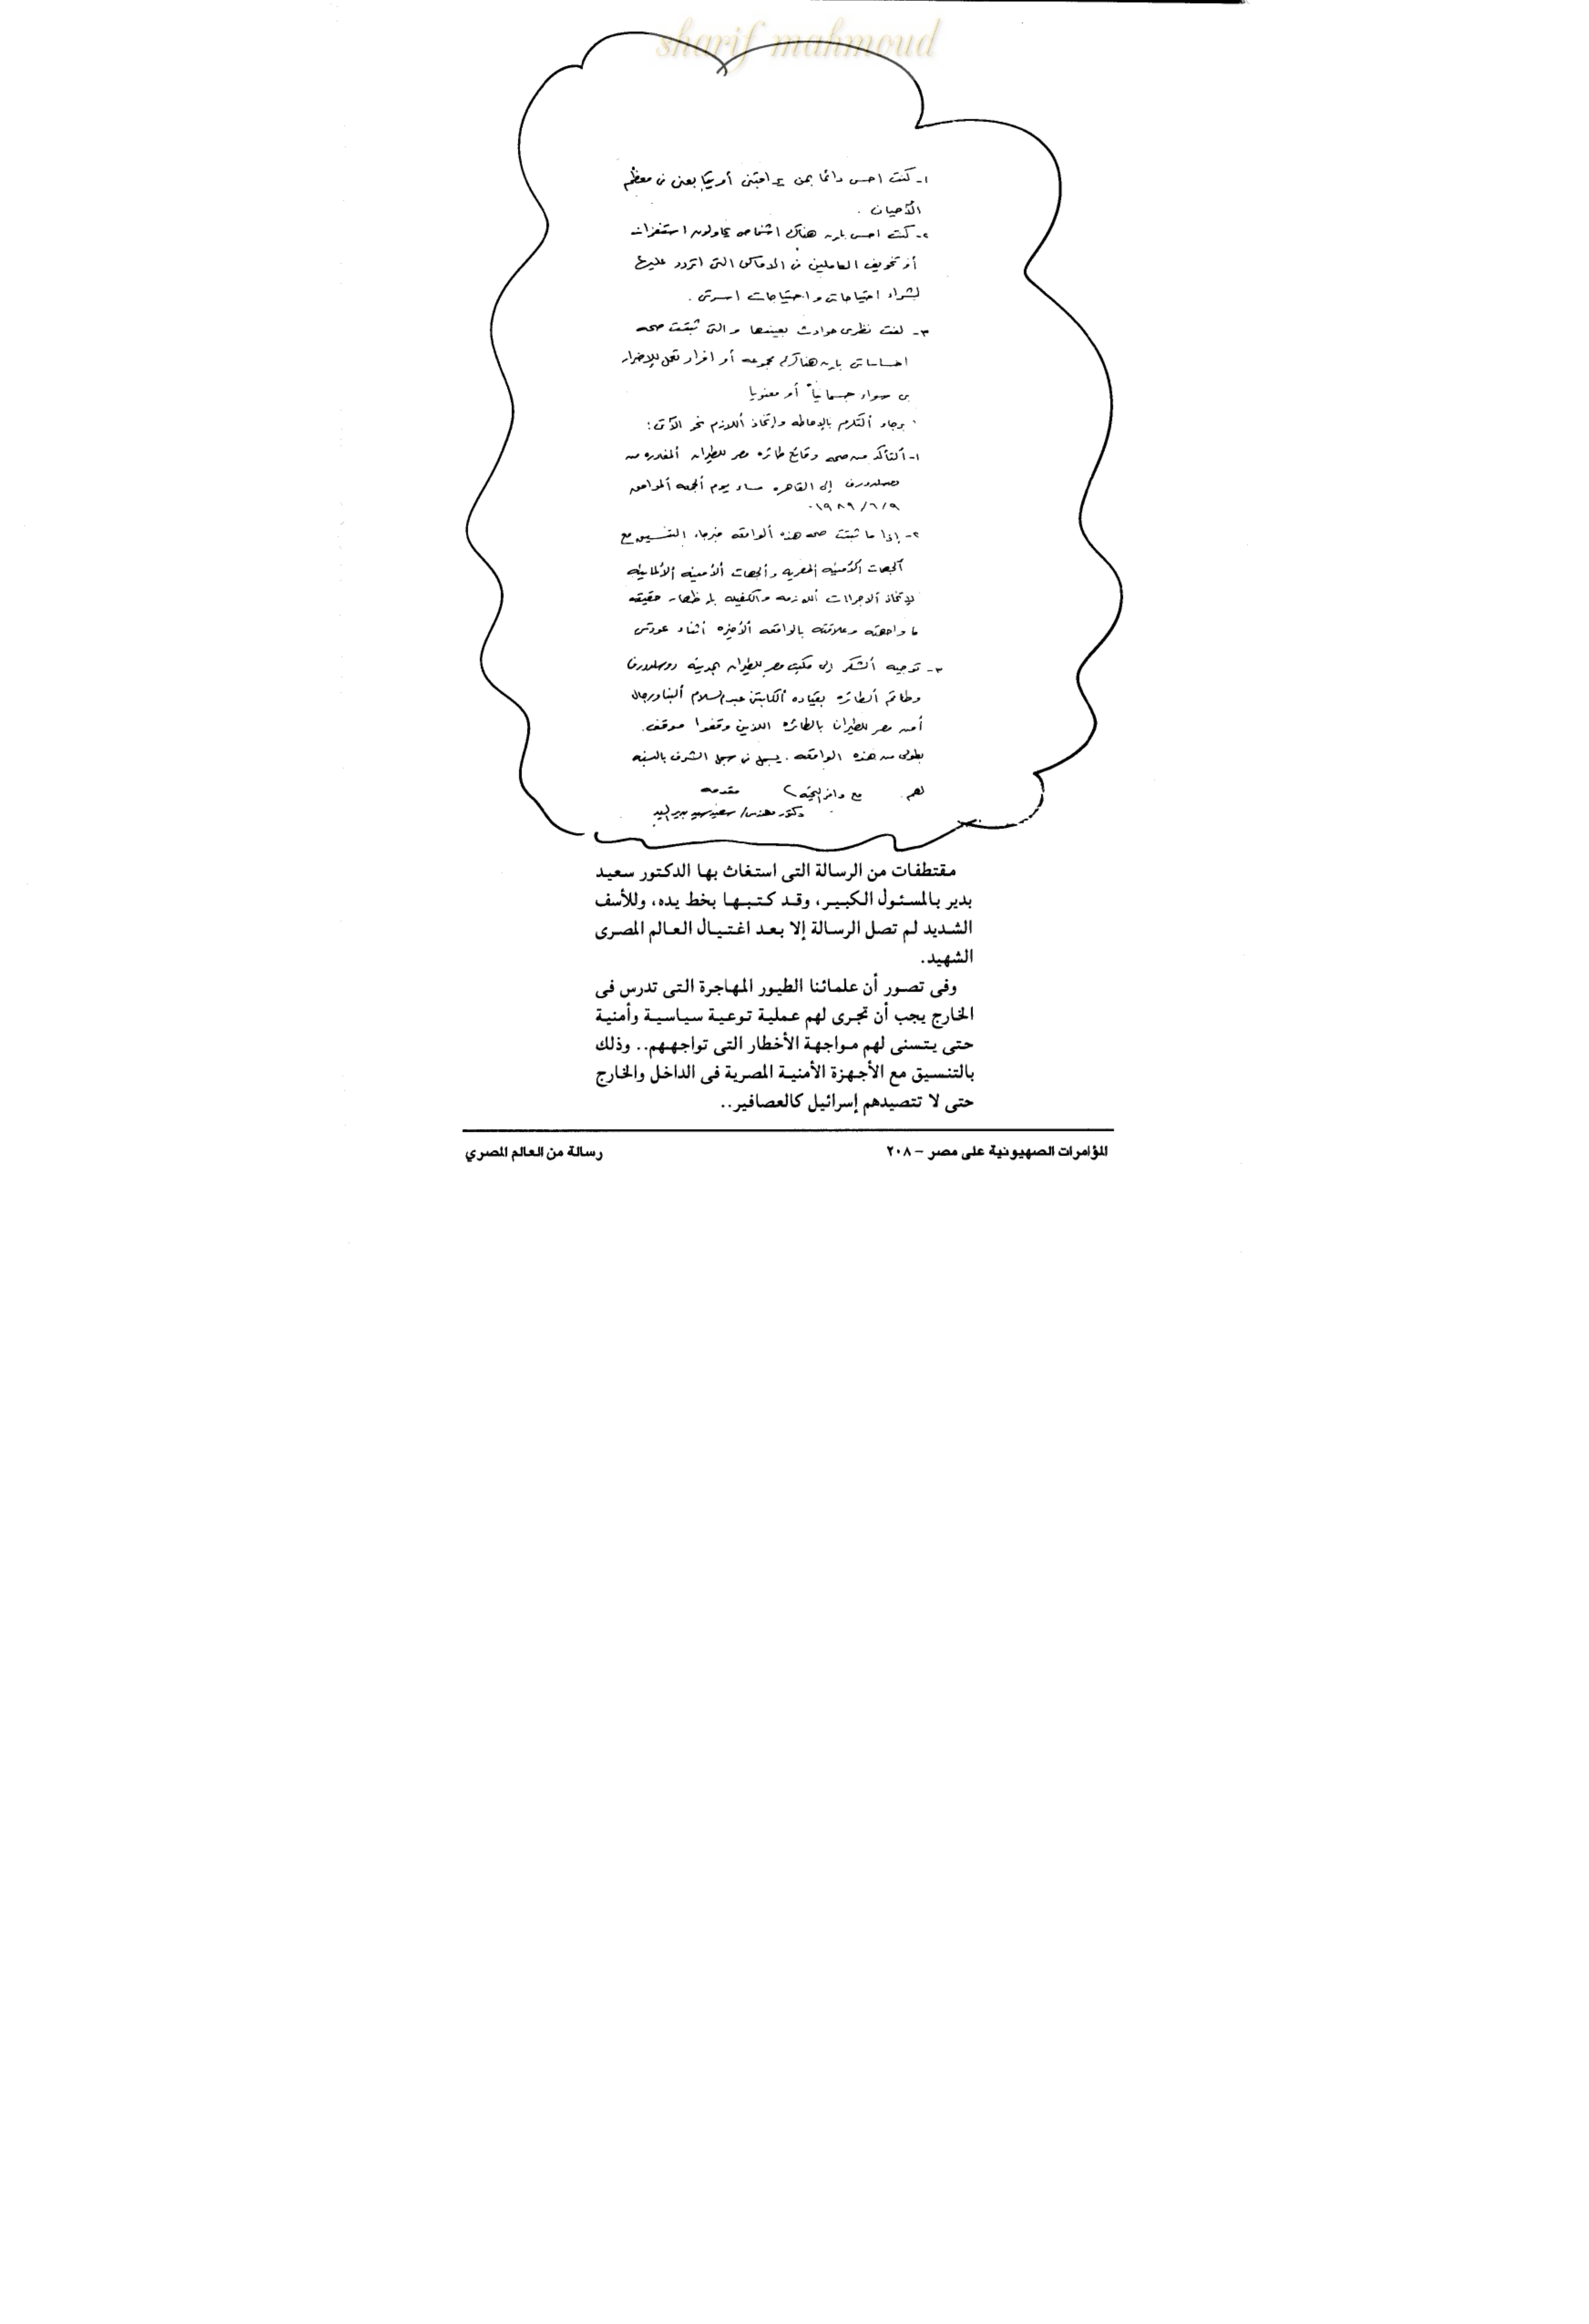 sharif mahmoud
١- كنت احس دائما بمن يراقبنى أو يتابعنى فى معظم
الأحيان .
٢- كنت احس بان هناك اشخاص يحاولون استفزازات
أو تخويف العاملين فى الاماكن التى اتردد عليها
لشراء احتياجاتى واحتياجات اسرتى .
٣- لفت نظرى حوادث بعينها والتى ثبتت صحه
احساساتى بان هناك مجموعه أو افراد تعمل للإضرار
بى سواء جسمانياً أو معنويا
برجاء التكرم بالإحاطه وإتخاذ اللازم نحو الآتى :
١- التأكد من صحه وقائع طائره مصر للطيران المغادره من
إلى القاهره مساء يوم الجمعه الموافق
١٩٨٩/٦/٩ .
٢- إذا ما ثبتت صحه هذه الواقعه فبرجاء التنسيق مع
الجهات الأمنيه المصريه والجهات الأمنيه الألمانيه
لإتخاذ الاجراءات اللازمه والكفيله بإظهار حقيقه
ما واجهته وعلاقته بالواقعه الأخيره أثناء عودتى
٣- توجيه الشكر إلى مكتب مصر للطيران بمدينه دوسلدورف
وطاقم الطائره بقياده الكابتن عبدالسلام البنا ورجال
أمن مصر للطيران بالطائره اللذين وقفوا موقف
بطولى من هذه الواقعه . يسجل فى سجل الشرف بالنسبه
لهم . مع وافر التحيه ، مقدمه
دكتور مهندس/ سعيد سيد بدير السيد
مقتطفات من الرسالة التى استغاث بها الدكتور سعيد
بدير بالمسئول الكبير، وقد كتبها بخط يده، وللأسف
الشديد لم تصل الرسالة إلا بعد اغتيال العالم المصرى
الشهيد.
وفى تصور أن علمائنا الطيور المهاجرة التى تدرس فى
الخارج يجب أن تجرى لهم عملية توعية سياسية وأمنية
حتى يتسنى لهم مواجهة الأخطار التى تواجههم.. وذلك
بالتنسيق مع الأجهزة الأمنية المصرية فى الداخل والخارج
حتى لا تتصيدهم إسرائيل كالعصافير..
المؤامرات الصهيونية على مصر - ٢٠٨
رسالة من العالم المصري